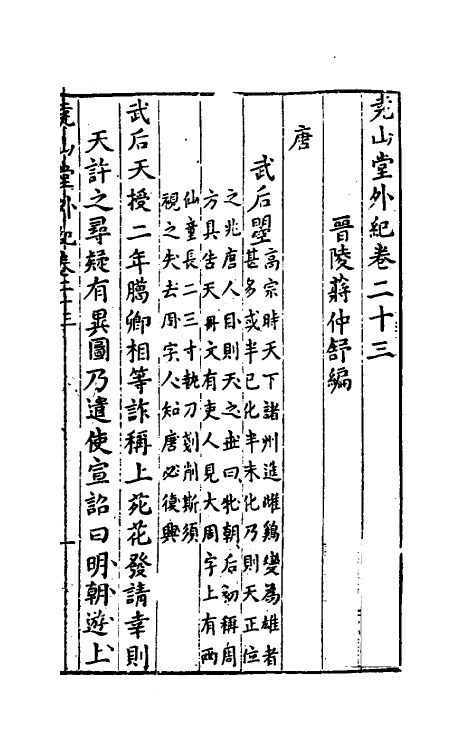 堯山堂外紀卷二十三
晉陵蔣仲舒編
唐
武后曌
高宗時天下諸州進雌鷄變爲雄者
甚多或半已化半未化乃則天正位
之兆唐人目則天之世曰牝朝后初稱周
方具告天冊文有吏人見大周字上有兩
仙童長二三寸執刀剗削斯須
視之失去周字人知唐必復興
武后天授二年臘卿相等詐稱上苑花發請幸則
天許之尋疑有異圖乃遣使宣詔曰明朝遊上
堯山堂外紀卷二十三
一